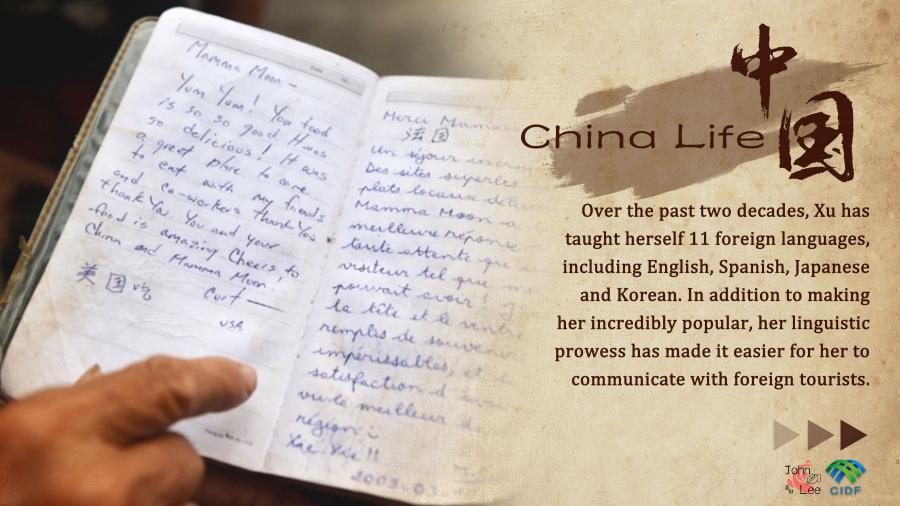 Mamma Moon –
Yum Yum! Your food
is so so good. It was
so delicious! It was
a great place to come
to eat with my friends
and co-workers. Thank You
thank You. You and your
food is amazing Cheers to
China and Mamma Moon!
Curt
USA
Merci Mamma
法国
un séjour
Des sites superbes
plats locaux
Mamma Moon a
meilleure réponse
toute attente que
visiteur tel que
pouvait avoir!
la tête et le
remplis de
impérissables, et
satisfaction
meilleur
région
China Life
中国
Over the past two decades, Xu has
taught herself 11 foreign languages,
including English, Spanish, Japanese
and Korean. In addition to making
her incredibly popular, her linguistic
prowess has made it easier for her to
communicate with foreign tourists.
John
Lee
CIDF